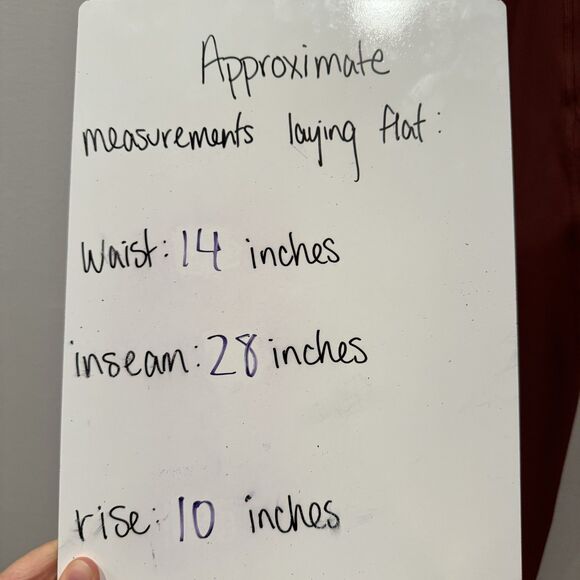 Approximate
measurements laying flat:
waist: 14 inches
inseam: 28 inches
rise: 10 inches